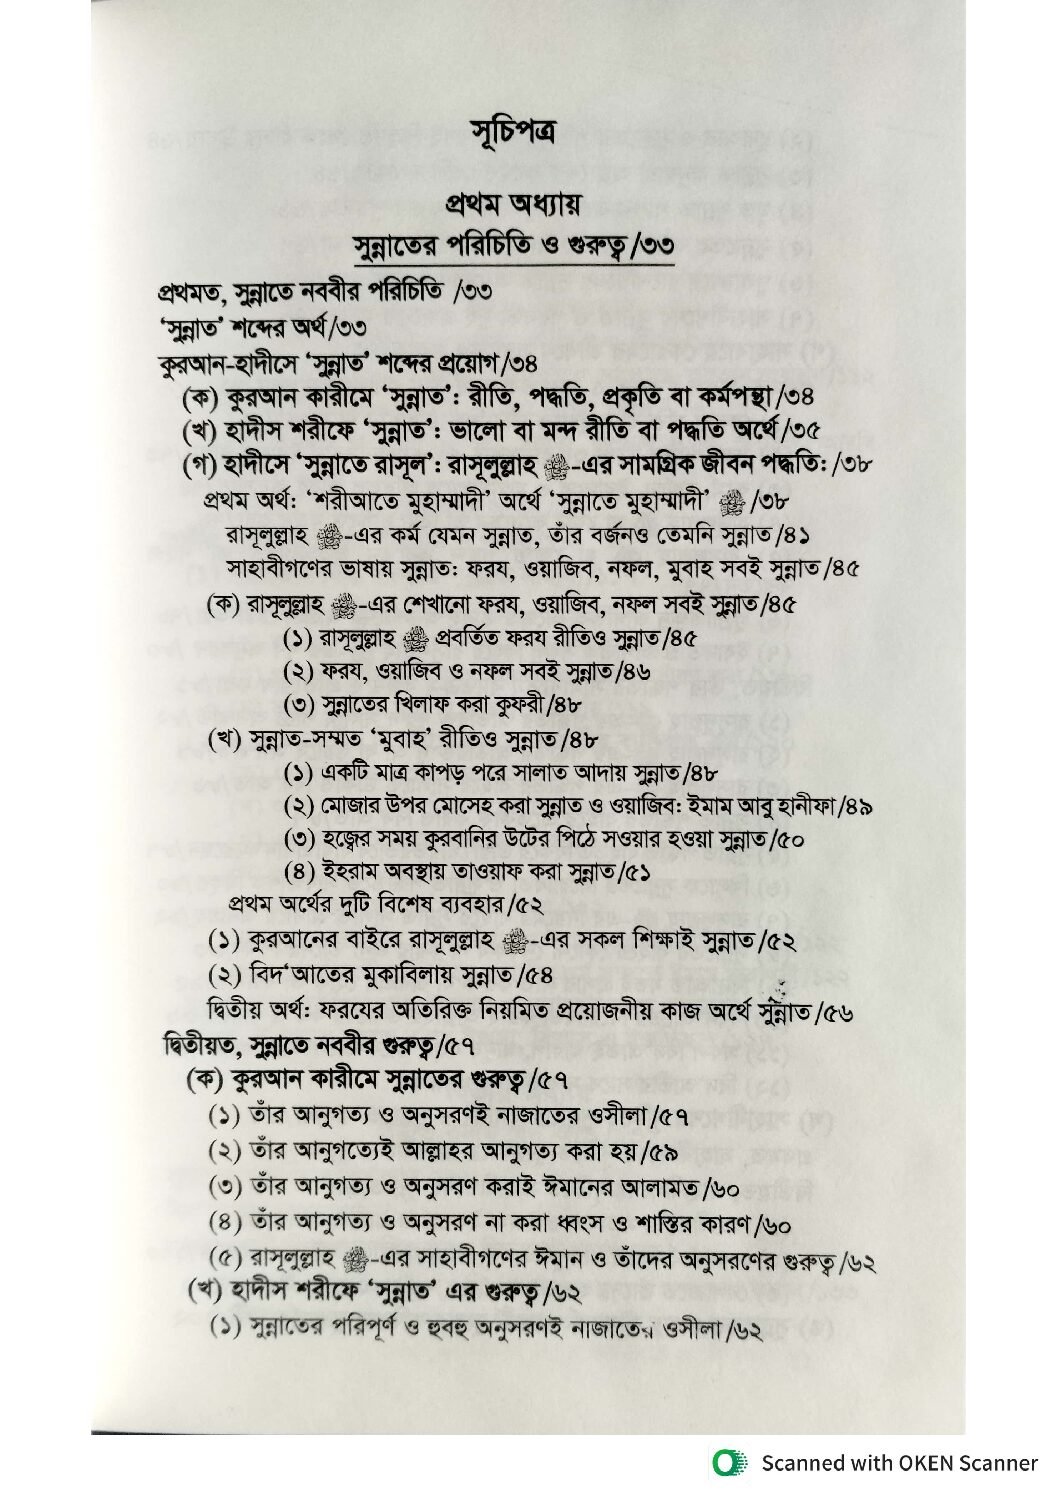 সূচিপত্র
প্রথম অধ্যায়
সুন্নাতের পরিচিতি ও গুরুত্ব/৩৩
প্রথমত, সুন্নাতে নববীর পরিচিতি /৩৩
‘সুন্নাত’ শব্দের অর্থ/৩৩
কুরআন-হাদীসে ‘সুন্নাত’ শব্দের প্রয়োগ/৩৪
(ক) কুরআন কারীমে ‘সুন্নাত’: রীতি, পদ্ধতি, প্রকৃতি বা কর্মপন্থা/৩৪
(খ) হাদীস শরীফে ‘সুন্নাত’: ভালো বা মন্দ রীতি বা পদ্ধতি অর্থে/৩৫
(গ) হাদীসে ‘সুন্নাতে রাসূল’: রাসূলুল্লাহ ﷺ-এর সামগ্রিক জীবন পদ্ধতি: /৩৮
প্রথম অর্থ: ‘শরীআতে মুহাম্মাদী’ অর্থে ‘সুন্নাতে মুহাম্মাদী’ ﷺ /৩৮
রাসূলুল্লাহ ﷺ-এর কর্ম যেমন সুন্নাত, তাঁর বর্জনও তেমনি সুন্নাত/৪১
সাহাবীগণের ভাষায় সুন্নাত: ফরয, ওয়াজিব, নফল, মুবাহ সবই সুন্নাত/৪৫
(ক) রাসূলুল্লাহ ﷺ-এর শেখানো ফরয, ওয়াজিব, নফল সবই সুন্নাত/৪৫
(১) রাসূলুল্লাহ ﷺ প্রবর্তিত ফরয রীতিও সুন্নাত/৪৫
(২) ফরয, ওয়াজিব ও নফল সবই সুন্নাত/৪৬
(৩) সুন্নাতের খিলাফ করা কুফরী/৪৮
(খ) সুন্নাত-সম্মত ‘মুবাহ’ রীতিও সুন্নাত/৪৮
(১) একটি মাত্র কাপড় পরে সালাত আদায় সুন্নাত/৪৮
(২) মোজার উপর মোসেহ করা সুন্নাত ও ওয়াজিব: ইমাম আবু হানীফা/৪৯
(৩) হজ্বের সময় কুরবানির উটের পিঠে সওয়ার হওয়া সুন্নাত/৫০
(৪) ইহরাম অবস্থায় তাওয়াফ করা সুন্নাত/৫১
প্রথম অর্থের দুটি বিশেষ ব্যবহার/৫২
(১) কুরআনের বাইরে রাসূলুল্লাহ ﷺ-এর সকল শিক্ষাই সুন্নাত/৫২
(২) বিদ‘আতের মুকাবিলায় সুন্নাত/৫৪
দ্বিতীয় অর্থ: ফরযের অতিরিক্ত নিয়মিত প্রয়োজনীয় কাজ অর্থে সুন্নাত/৫৬
দ্বিতীয়ত, সুন্নাতে নববীর গুরুত্ব/৫৭
(ক) কুরআন কারীমে সুন্নাতের গুরুত্ব/৫৭
(১) তাঁর আনুগত্য ও অনুসরণই নাজাতের ওসীলা/৫৭
(২) তাঁর আনুগত্যেই আল্লাহর আনুগত্য করা হয়/৫৯
(৩) তাঁর আনুগত্য ও অনুসরণ করাই ঈমানের আলামত/৬০
(৪) তাঁর আনুগত্য ও অনুসরণ না করা ধ্বংস ও শাস্তির কারণ/৬০
(৫) রাসূলুল্লাহ ﷺ-এর সাহাবীগণের ঈমান ও তাঁদের অনুসরণের গুরুত্ব/৬২
(খ) হাদীস শরীফে ‘সুন্নাত’ এর গুরুত্ব/৬২
(১) সুন্নাতের পরিপূর্ণ ও হুবহু অনুসরণই নাজাতের ওসীলা/৬২
Scanned with OKEN Scanner